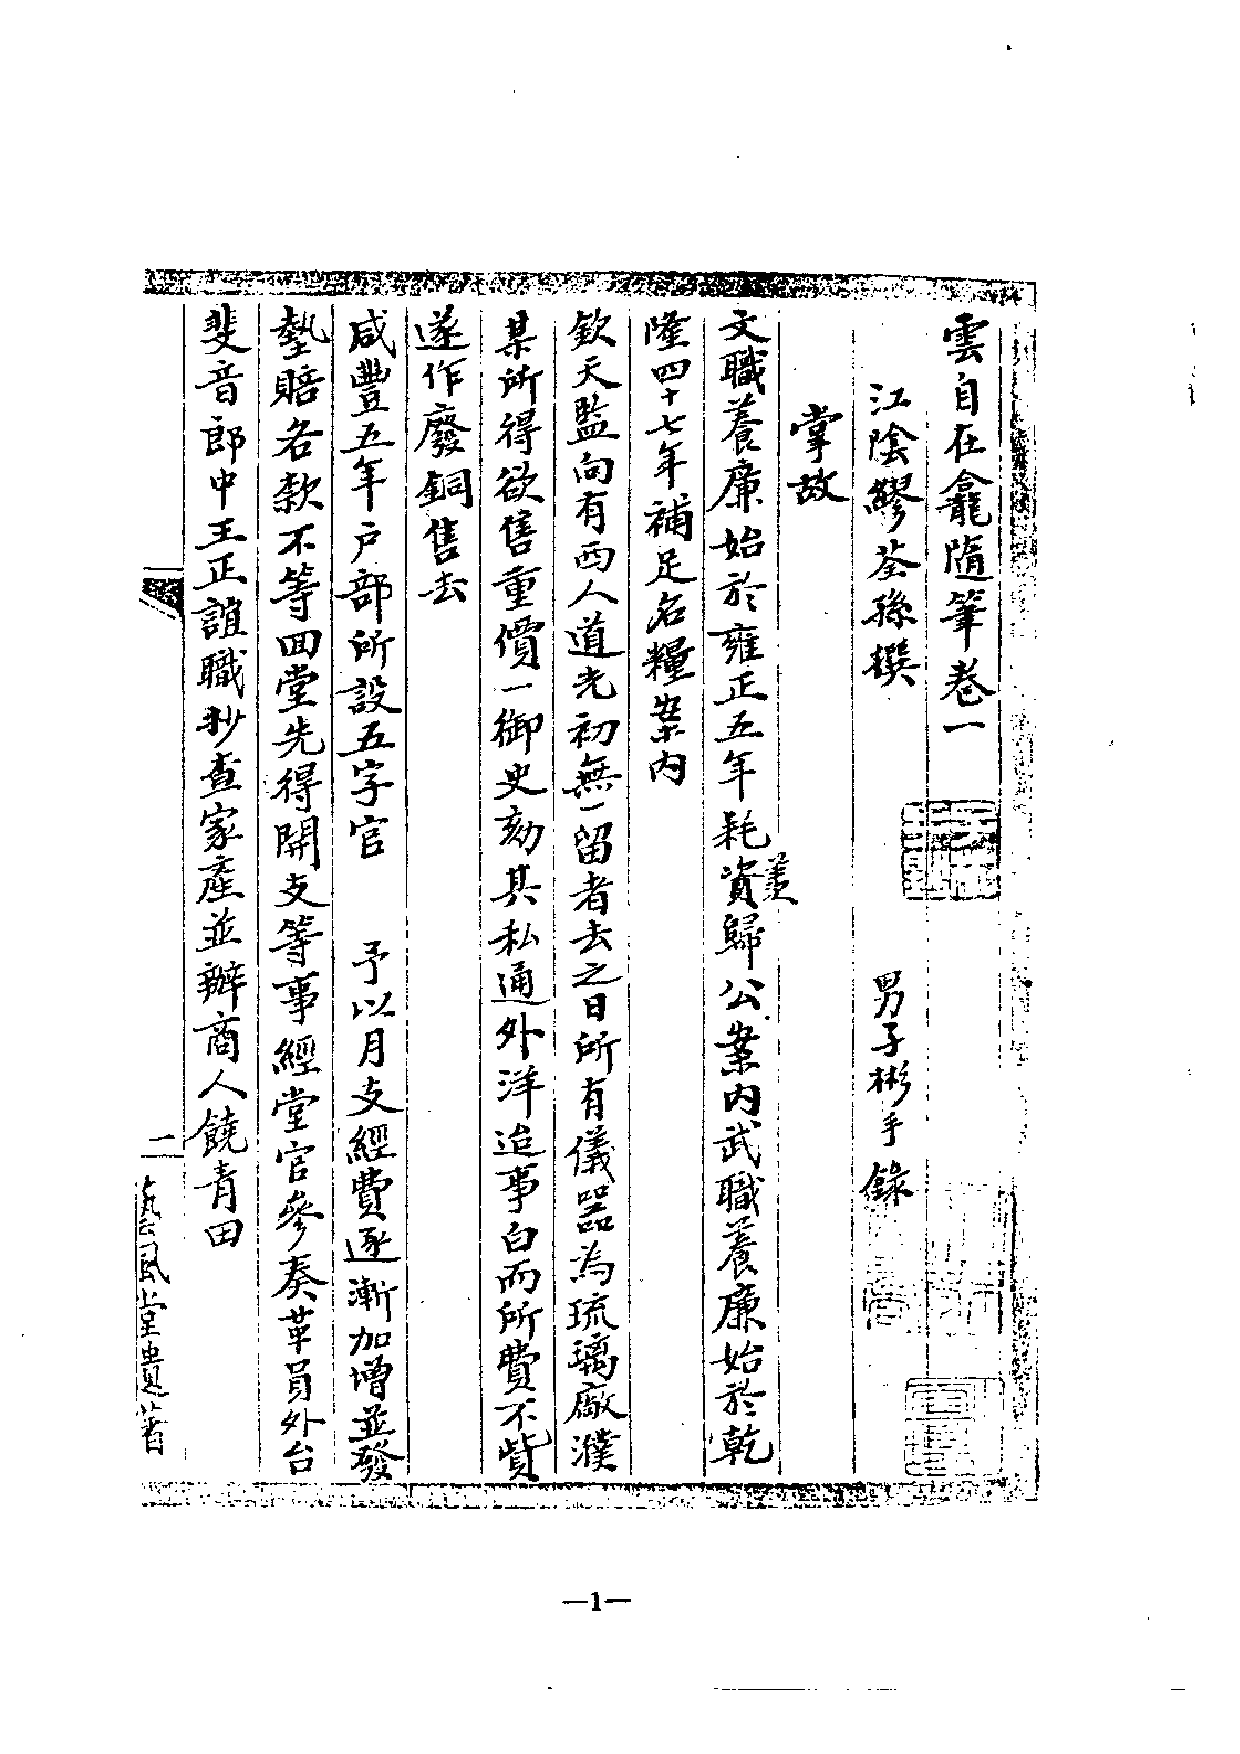 雲自在龕隨筆卷一
江陰繆荃孫撰 男子彬手錄
掌故
文職養廉始於雍正五年耗資羨歸公案內武職養廉始於乾
隆四十七年補足名糧案內
欽天監向有西人道光初無一留者去之日所有儀器為琉璃廠濮
某所得欲售重價一御史劾其私通外洋迨事白而所費不貲
遂作廢銅售去
咸豐五年戶部所設五字官 予以月支經費逐漸加增並發
墊賠各款不等回堂先得開支等事經堂官參奏革員外台
斐音郎中王正誼職抄查家產並辦商人饒青田
一
藝風堂遺著
—1—